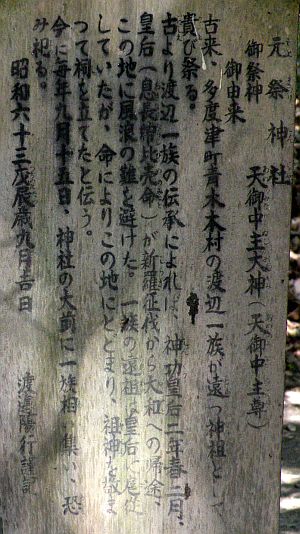 元祭神社
御祭神 天御中主大神(天御中主尊)
御由来
古来、多度津町青木木村の渡辺一族が遠つ神祖として
貴び祭る。
古より渡辺一族の伝承によれば、神功皇后二年春二月、
皇后(息長帯比売命)が新羅征伐から大和への帰途、
この地に風浪の難を避けた。一族の遠祖は皇后に
していたが、命によりこの地にとどまり、祖神を
つて祠を立てたと伝う。
今に毎年九月十五日、神社の大前に一族相い集い、恐
み祀る。
昭和六十三戊辰歳九月吉日
渡邊陽行謹記